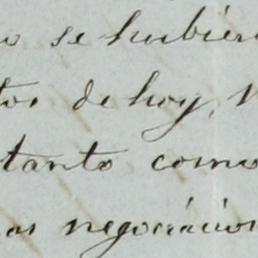 se hubier
tos de hoy,
tanto como
os negocios